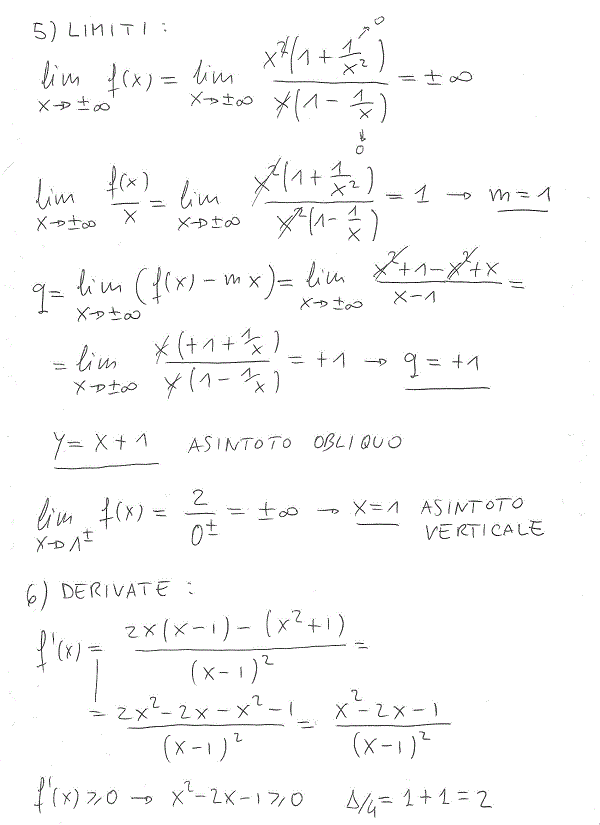 5) LIMITI :
lim x→±∞ f(x) = lim x→±∞ x²(1 + 1/x²) / x(1 - 1/x) = ±∞
→0
↓0
lim x→±∞ f(x)/x = lim x→±∞ x²(1 + 1/x²) / x²(1 - 1/x) = 1 → m = 1
q = lim x→±∞ (f(x) - mx) = lim x→±∞ (x² + 1 - x² + x) / (x - 1) =
= lim x→±∞ x(+1 + 1/x) / x(1 - 1/x) = +1 → q = +1
y = x + 1 ASINTOTO OBLIQUO
lim x→1± f(x) = 2/0± = ±∞ → x = 1 ASINTOTO
VERTICALE
6) DERIVATE :
f'(x) = (2x(x-1) - (x²+1)) / (x-1)² =
= (2x² - 2x - x² - 1) / (x-1)² = (x² - 2x - 1) / (x-1)²
f'(x) ≥ 0 → x² - 2x - 1 ≥ 0 Δ/4 = 1 + 1 = 2